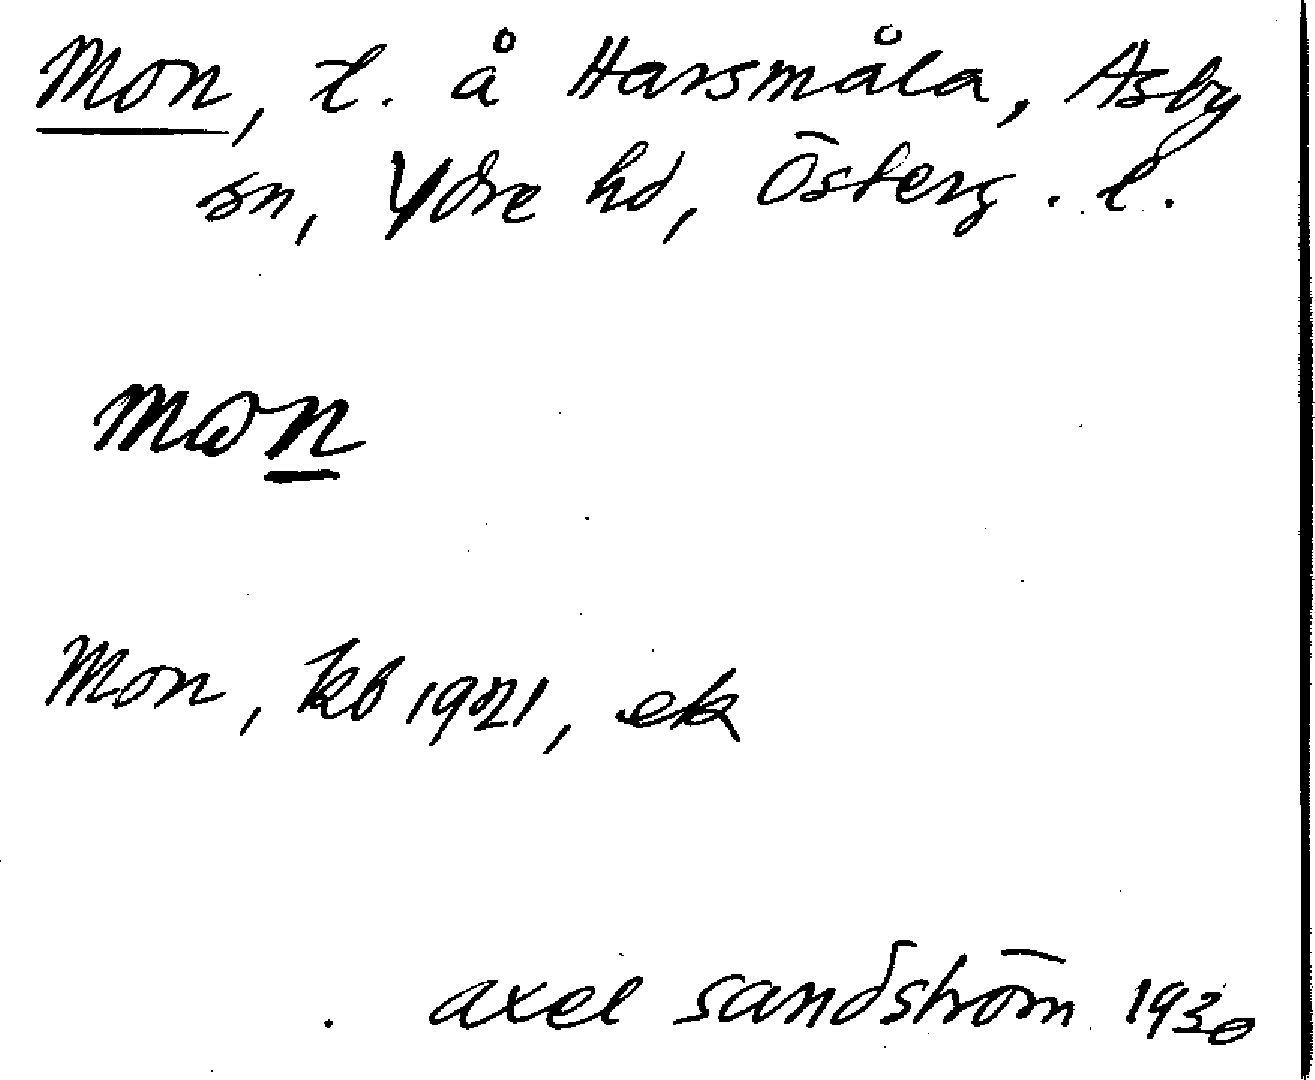 Mon, t. å Harsmåla, Asby
sn, Ydre hd, Österg. l.
mωn
Mon, kb 1921, ek
axel sandström 1930